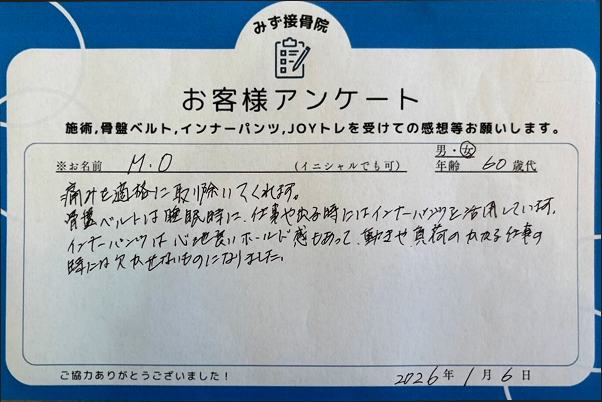 みず接骨院
お客様アンケート
施術,骨盤ベルト,インナーパンツ,JOYトレを受けての感想等お願いします。
男・女
※お名前 M.O (イニシャルでも可) 年齢 60 歳代
痛みを適格に取り除いてくれます。
骨盤ベルトは睡眠時に、仕事や出る時にはインナーパンツを活用しています。
インナーパンツは心地良いホールド感もあって、動きや負荷のかかる仕事の
時には欠かせないものになりました。
ご協力ありがとうございました! 2026年 1月 6日